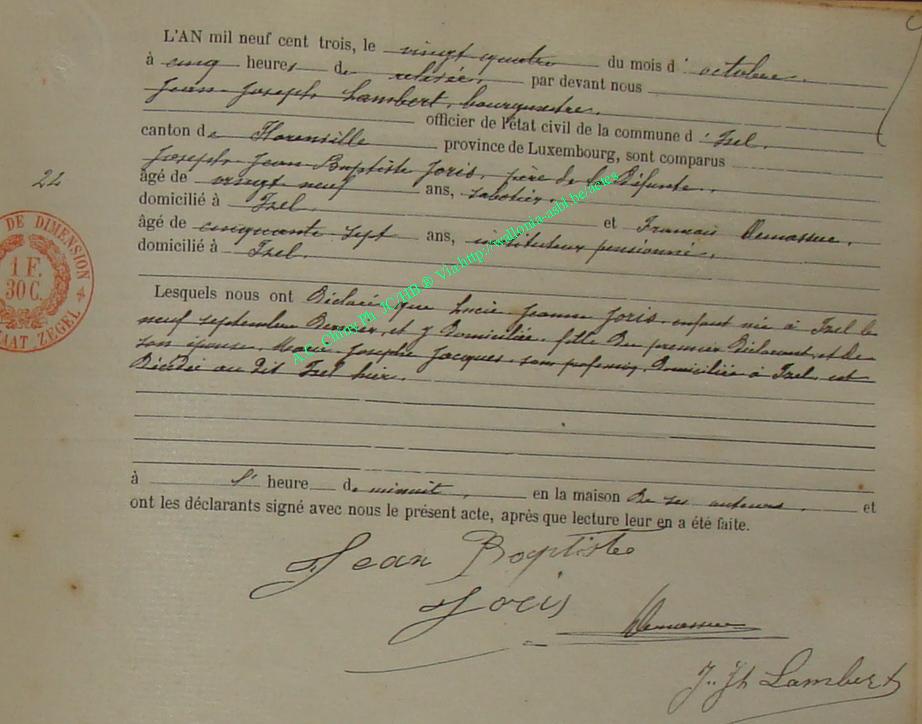 L'AN mil neuf cent trois, le vingt quatre du mois d'octobre,
à cinq heures de relevée, par devant nous
Jean Joseph Lambert, bourgmestre,
officier de l'état civil de la commune d'Izel,
canton de Florenville province de Luxembourg, sont comparus
Joseph Jean Baptiste Joris, père de la Défunte,
22
âgé de vingt neuf ans, sabotier
domicilié à Izel et François Demasue,
âgé de cinquante sept ans, instituteur pensionné,
domicilié à Izel.
DE DIMENSION
1 F.
30 C.
ZEGEL
A.C. Chiny Ph JC/HB ® Via http://wallonia-asbl.be/actes
Lesquels nous ont Déclaré que Lucie Jeanne Joris, enfant née à Izel le
neuf septembre Dernier, et y Domiciliée, fille Du premier Déclarant, et de
son épouse, Marie Josephe Jacques, sans profession, Domiciliée à Izel, est
Décédée au dit Izel hier,
à l'heure de minuit, en la maison De ses auteurs, et
ont les déclarants signé avec nous le présent acte, après que lecture leur en a été faite.
Jean Baptiste
Joris
J. Jh Lambert